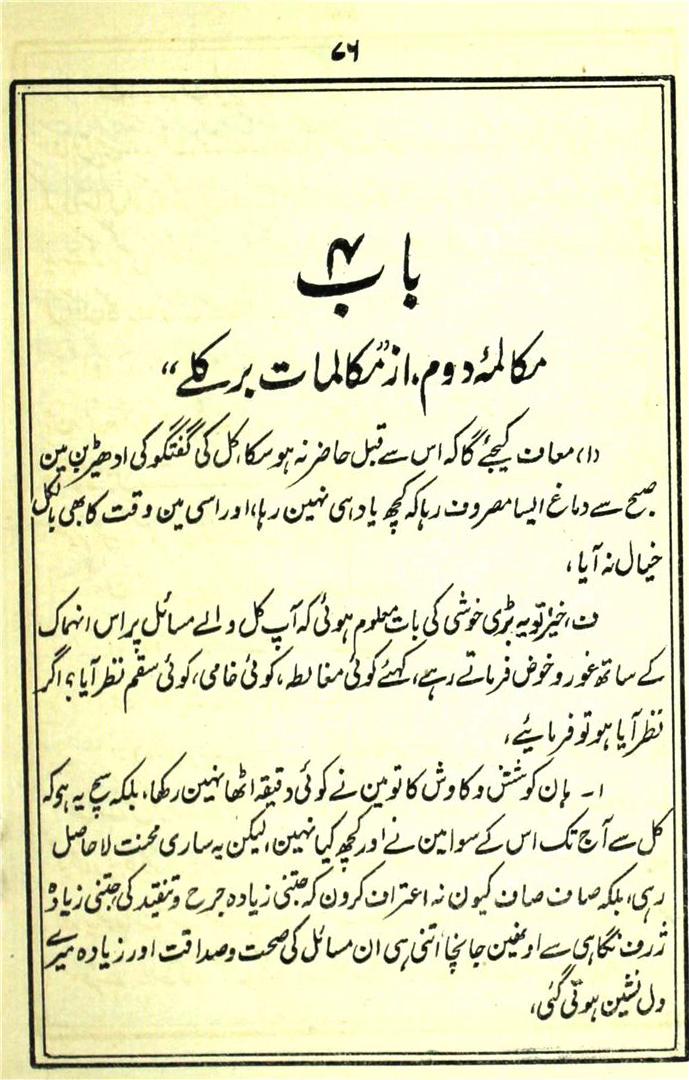 ۷۶
باب ۴
مکالمۂ دوم، از "مکالمات برکلے"
(ا) معاف کیجئے گا کہ اس سے قبل حاضر نہ ہو سکا، کل کی گفتگو کی ادھیڑ بن مین
صبح سے دماغ ایسا مصروف رہا کہ کچھ یاد ہی نہین رہا، اور اسی مین وقت کا بھی بالکل
خیال نہ آیا،
ف، خیر تو یہ بڑی خوشی کی بات معلوم ہوئی کہ آپ کل والے مسائل پر اس انہماک
کے ساتھ غور و خوض فرماتے رہے، کہئے کوئی مغالطہ، کوئی خامی، کوئی سقم نظر آیا؟ اگر
نظر آیا ہو تو فرمائیے،
ا۔ ہان کوشش و کاوش کا تو مین نے کوئی دقیقہ اٹھا نہین رکھا، بلکہ سچ یہ ہو کہ
کل سے آج تک اس کے سوا مین نے اور کچھ کیا نہین، لیکن یہ ساری محنت لا حاصل
رہی، بلکہ صاف صاف کیون نہ اعتراف کرون کہ جتنی زیادہ جرح و تنقید کی، جتنی زیادہ
ژرف نگاہی سے اونھین جانچا اتنی ہی ان مسائل کی صحت و صداقت اور زیادہ میرے
دل نشین ہوتی گئی،